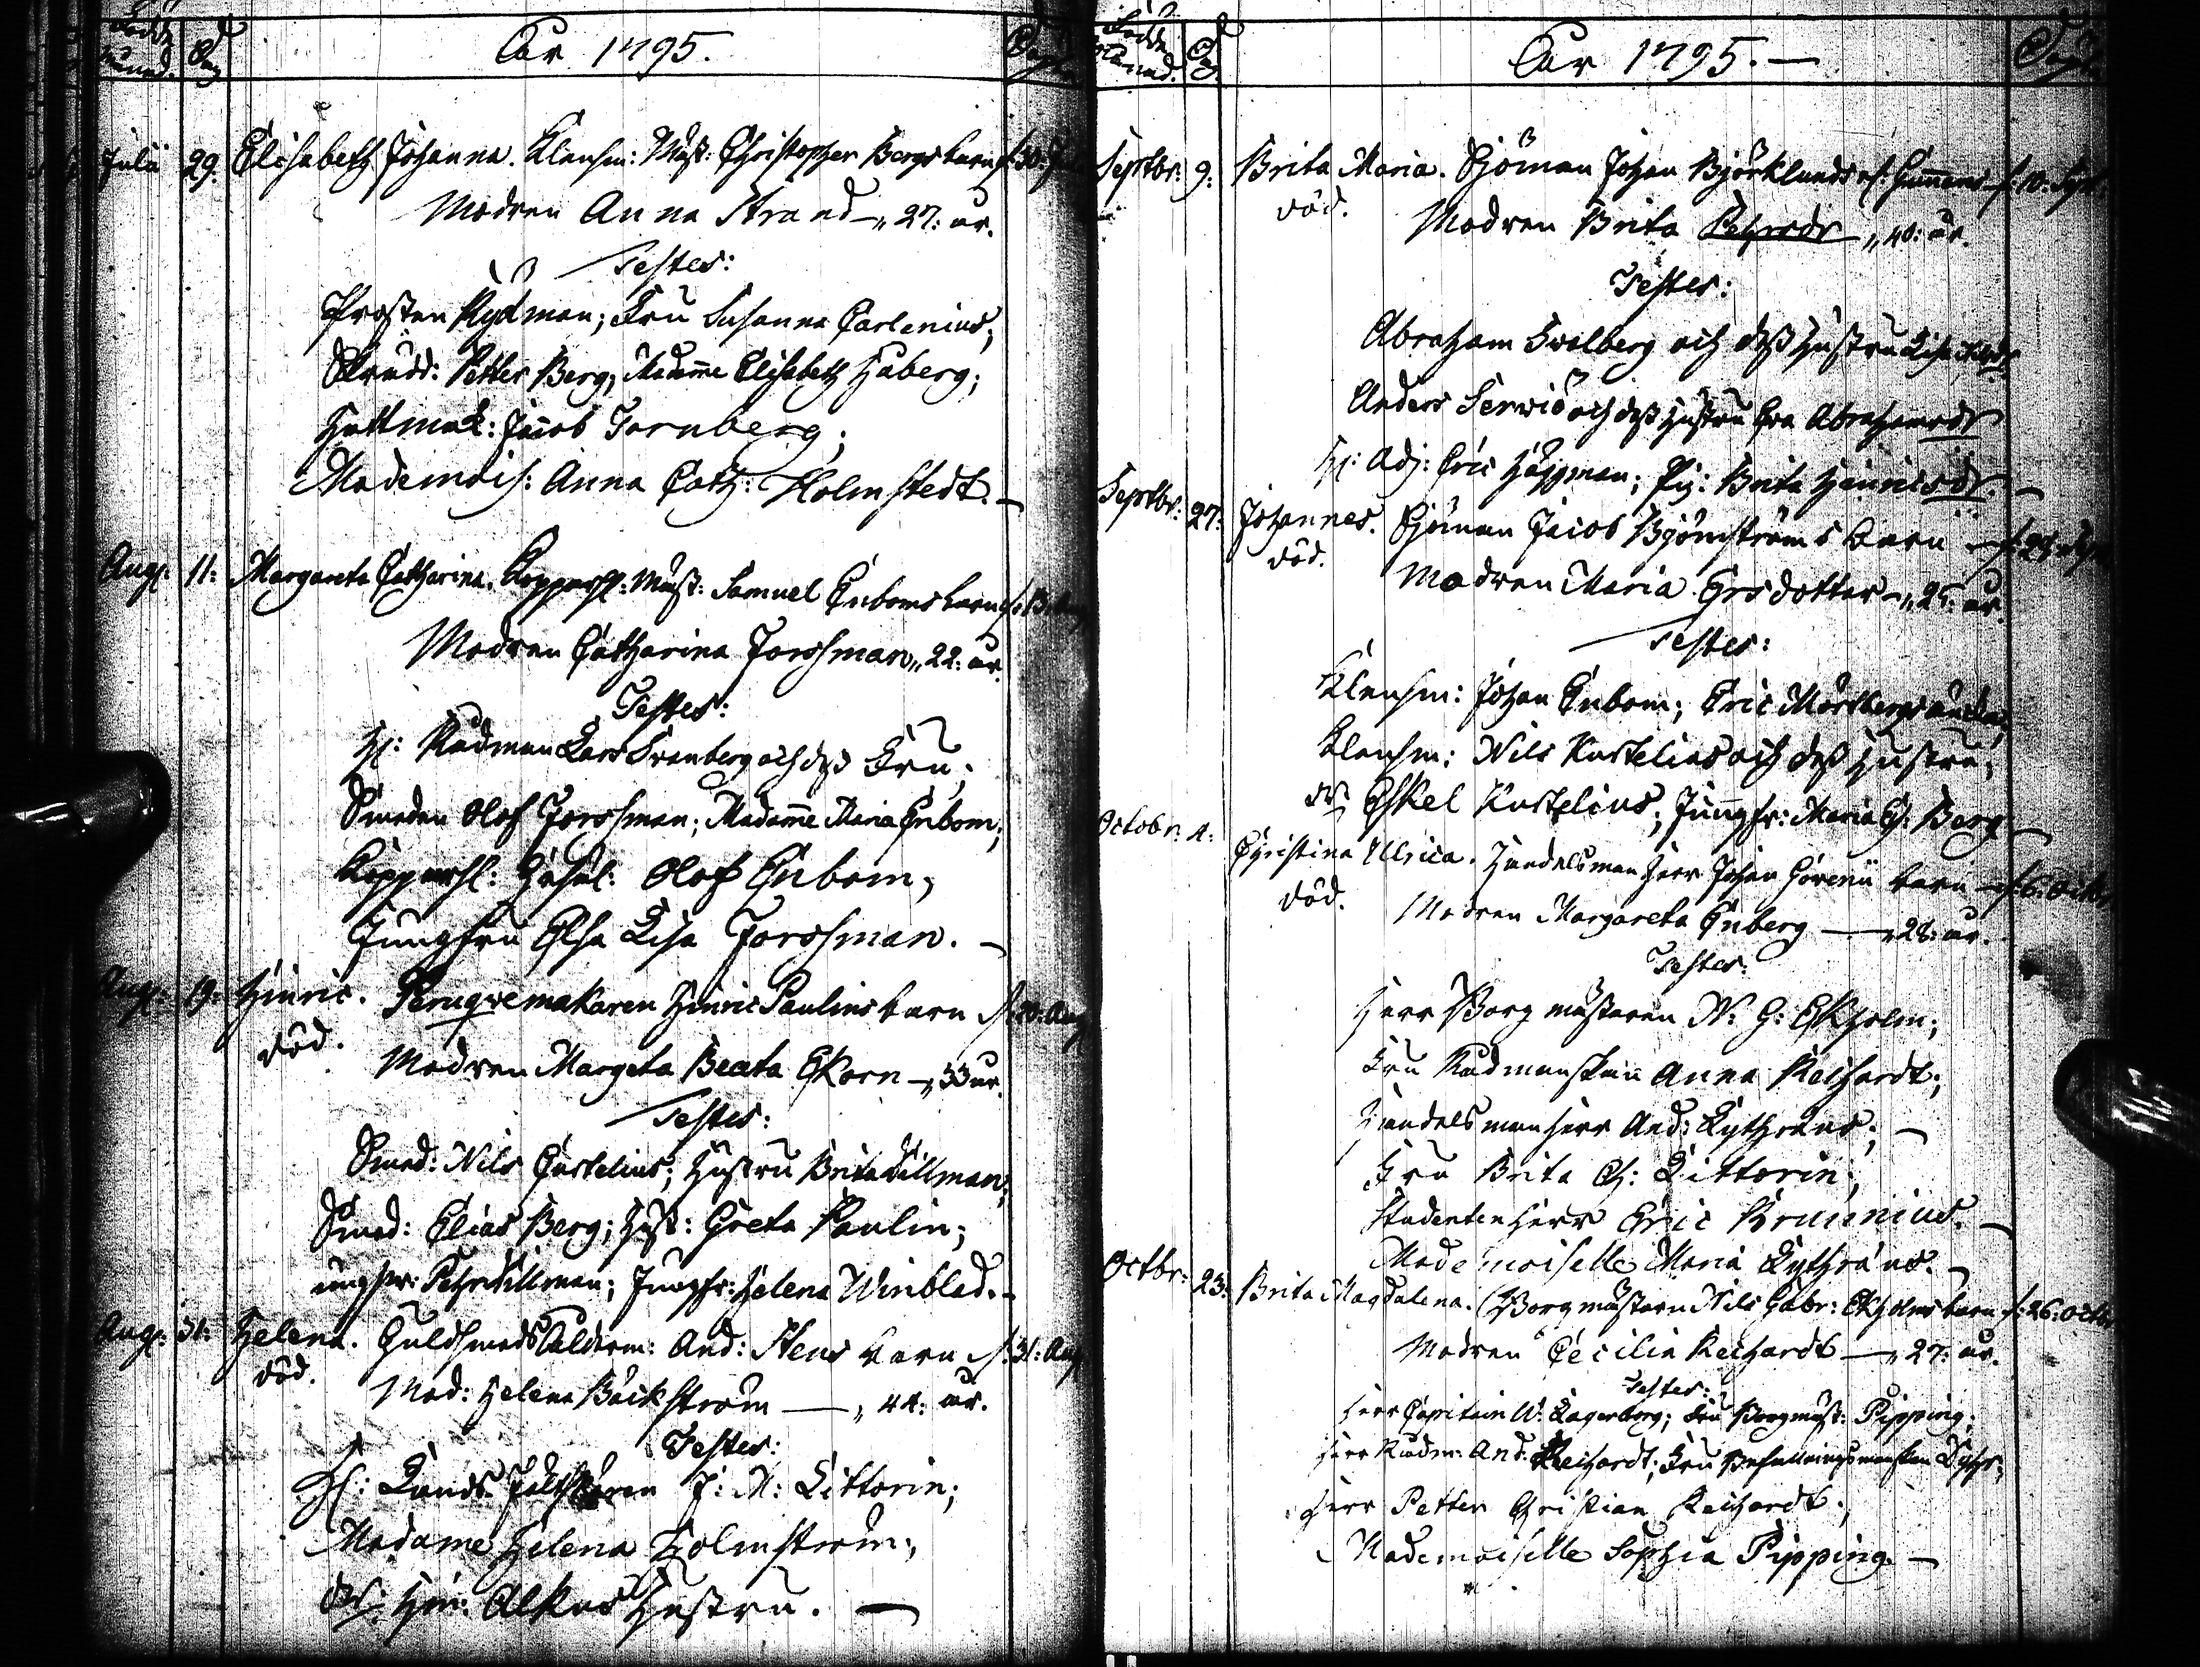 Född
månad.
Dag
Åhr 1795.
Julii 29. Elisabeth Johanna. Klensm: Mäst: Christopher Bergs barn d. 30.
Modren Anna Strand —„ 27: år.
Testes:
Prosten Rydman; Fru Susanna Carlenius;
Skrädd: Petter Berg, Madame Elisabeth Haberg;
Hattmak: Jacob Tornberg;
Mademois: Anna Cath: Holmstedt. —
Aug: 11: Margareta Catharina. Kopparsl: Mäst: Samuel Enboms barn d:
Modren Catharina Forssman „ 22: år.
Testes:
Hr: Rådman Lars Svanberg och dess Fru;
Smeden Olof Forssman; Madame Maria Enbom;
Kopparsl: Gesäl: Olof Enbom;
Jungfru Elsa Lisa Forssman. —
Aug: 19: Hinric. Peruqvemakaren Hinric Paulins barn d. 20: Aug
död.
Modren Margeta Beata Ekorn —„ 33 år.
Testes:
Smed: Nils Curtelius; Hustru Brita Tillman;
Smed: Elias Berg; Hust: Greta Paulin;
ungkar: Pehr Tillman; Jungfr: Helena Winblad. —
Aug: 31: Helena. Guldsmeds Ålderm: And: Stens barn d. 31: Aug
död.
Mod: Helena Bäckström — „ 44: år.
Testes:
Hr: Lands Fältskären J: M: Littorin;
Madame Helena Holmström;
Hin: Alkus Hustru. —
Född
månad.
Dag
Åhr 1795. —
Septbr: 9: Brita Maria. Sjöman Johan Björklunds d. 10. Sept
död.
Modren Brita Pehrsdr „ 40: år.
Testes:
Abraham Svalberg och dess hustru Lisa
Anders Servio och dess hustru Eva Abrahamsdr
Hr: Adj: Eric Häggman; Pig: Brita Hinricsdr. —
Septbr: 27: Johannes. Sjöman Jacob Björnströms barn
död.
Modren Maria Ersdotter —„ 25: år.
Testes:
Klensm: Johan Enbom; Eric Mörtbergs änka;
Klensm: Nils Kurtelius och dess hustru;
Eskel Kurtelius; Jungfr: Maria C: Berg —
Octobr: 4: Christina Ulrica. Handelsman Herr Johan Govenii barn d. 6. Octbr
död.
Modren Margareta Enberg —„ 28: år.
Testes:
Herr Borgmästaren N: G: Ekholm;
Fru Rådmanskan Anna Reihardt;
Handelsman herr And: Lythræus; —
Fru Brita C: Littorin;
Studenten herr Eric Brunnius. —
Mademoiselle Maria Lythræus. —
Octbr: 23: Brita Magdalena. Borgmästarn Nils Gabr: Ekholms barn d: 26: Octbr
Modren Cecilia Reihardt —„ 27: år.
Testes:
Herr Capitain W: Lagerborg; Fru Borgmäst: Pipping;
Herr Rådm: And: Reihardt; Fru Befallningsmanskan
Herr Petter Christian Reihardt;
Mademoiselle Sophia Pipping. —